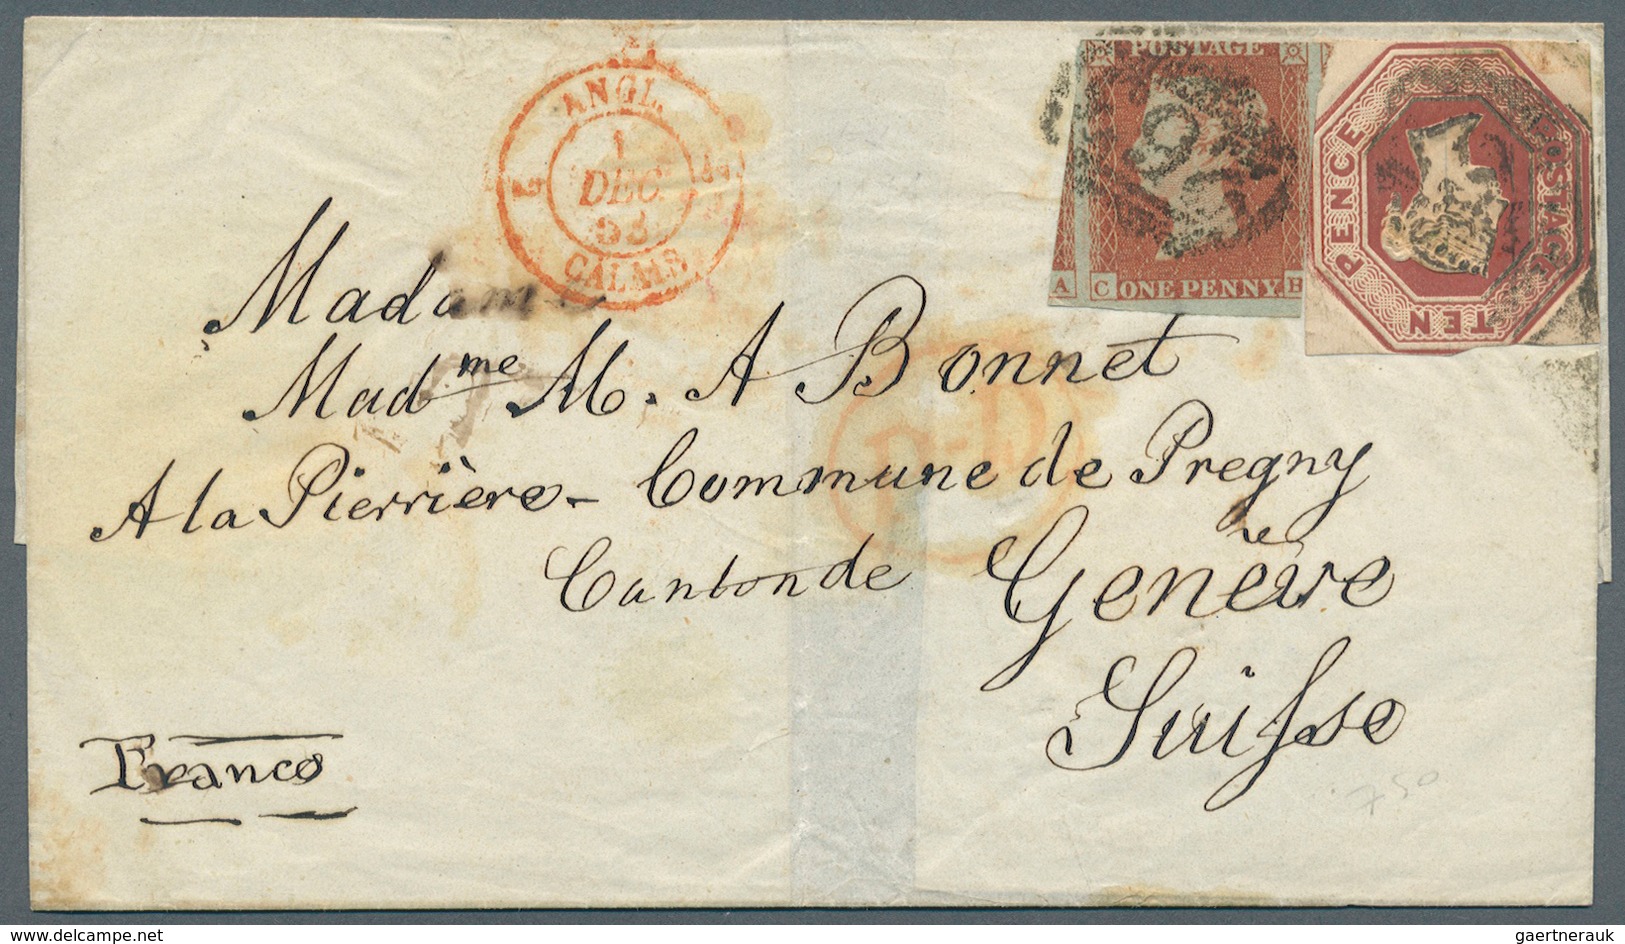 POSTAGE
A C ONE PENNY. B
POSTAGE
TEN PENCE
ANGL.
1
DEC.
53
CALAIS
Madame
Mad^me M. A Bonnet
A la Pierrière - Commune de Pregny
Canton de Genève
Suisse
P.D.
Franco
750
delcampe.net
gaertnerauk